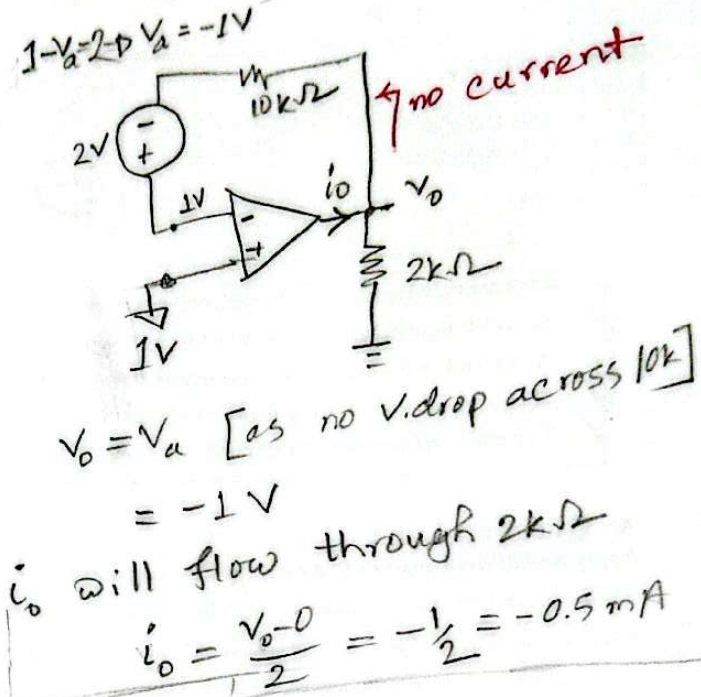 1-Va=2→ Va = -1V
no current
10kΩ
-
2V
+
1V
-
+
io
Vo
2kΩ
1V
Vo = Va [as no V.drop across 10k]
= -1 V
io will flow through 2kΩ
io = Vo-0/2 = -1/2 = -0.5 mA